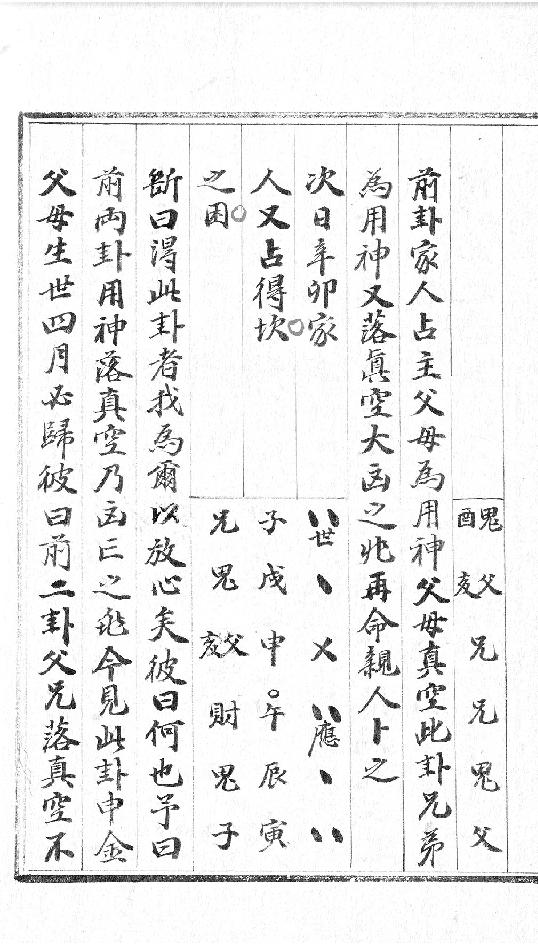 鬼酉 父亥 兄 兄 鬼 父
前卦家人占主父母為用神父母真空此卦兄弟
為用神又落眞空大凶之兆再命親人卜之
次日辛卯家
人又占得坎
之困
〃世 、 乂 〃應 、 〃
子 戌 申 午 辰 寅
兄 鬼 父亥 財 鬼 子
斷曰得此卦者我為爾以放心矣彼曰何也予曰
前両卦用神落真空乃凶亡之兆今見此卦申金
父母生世四月必歸彼曰前二卦父兄落真空不